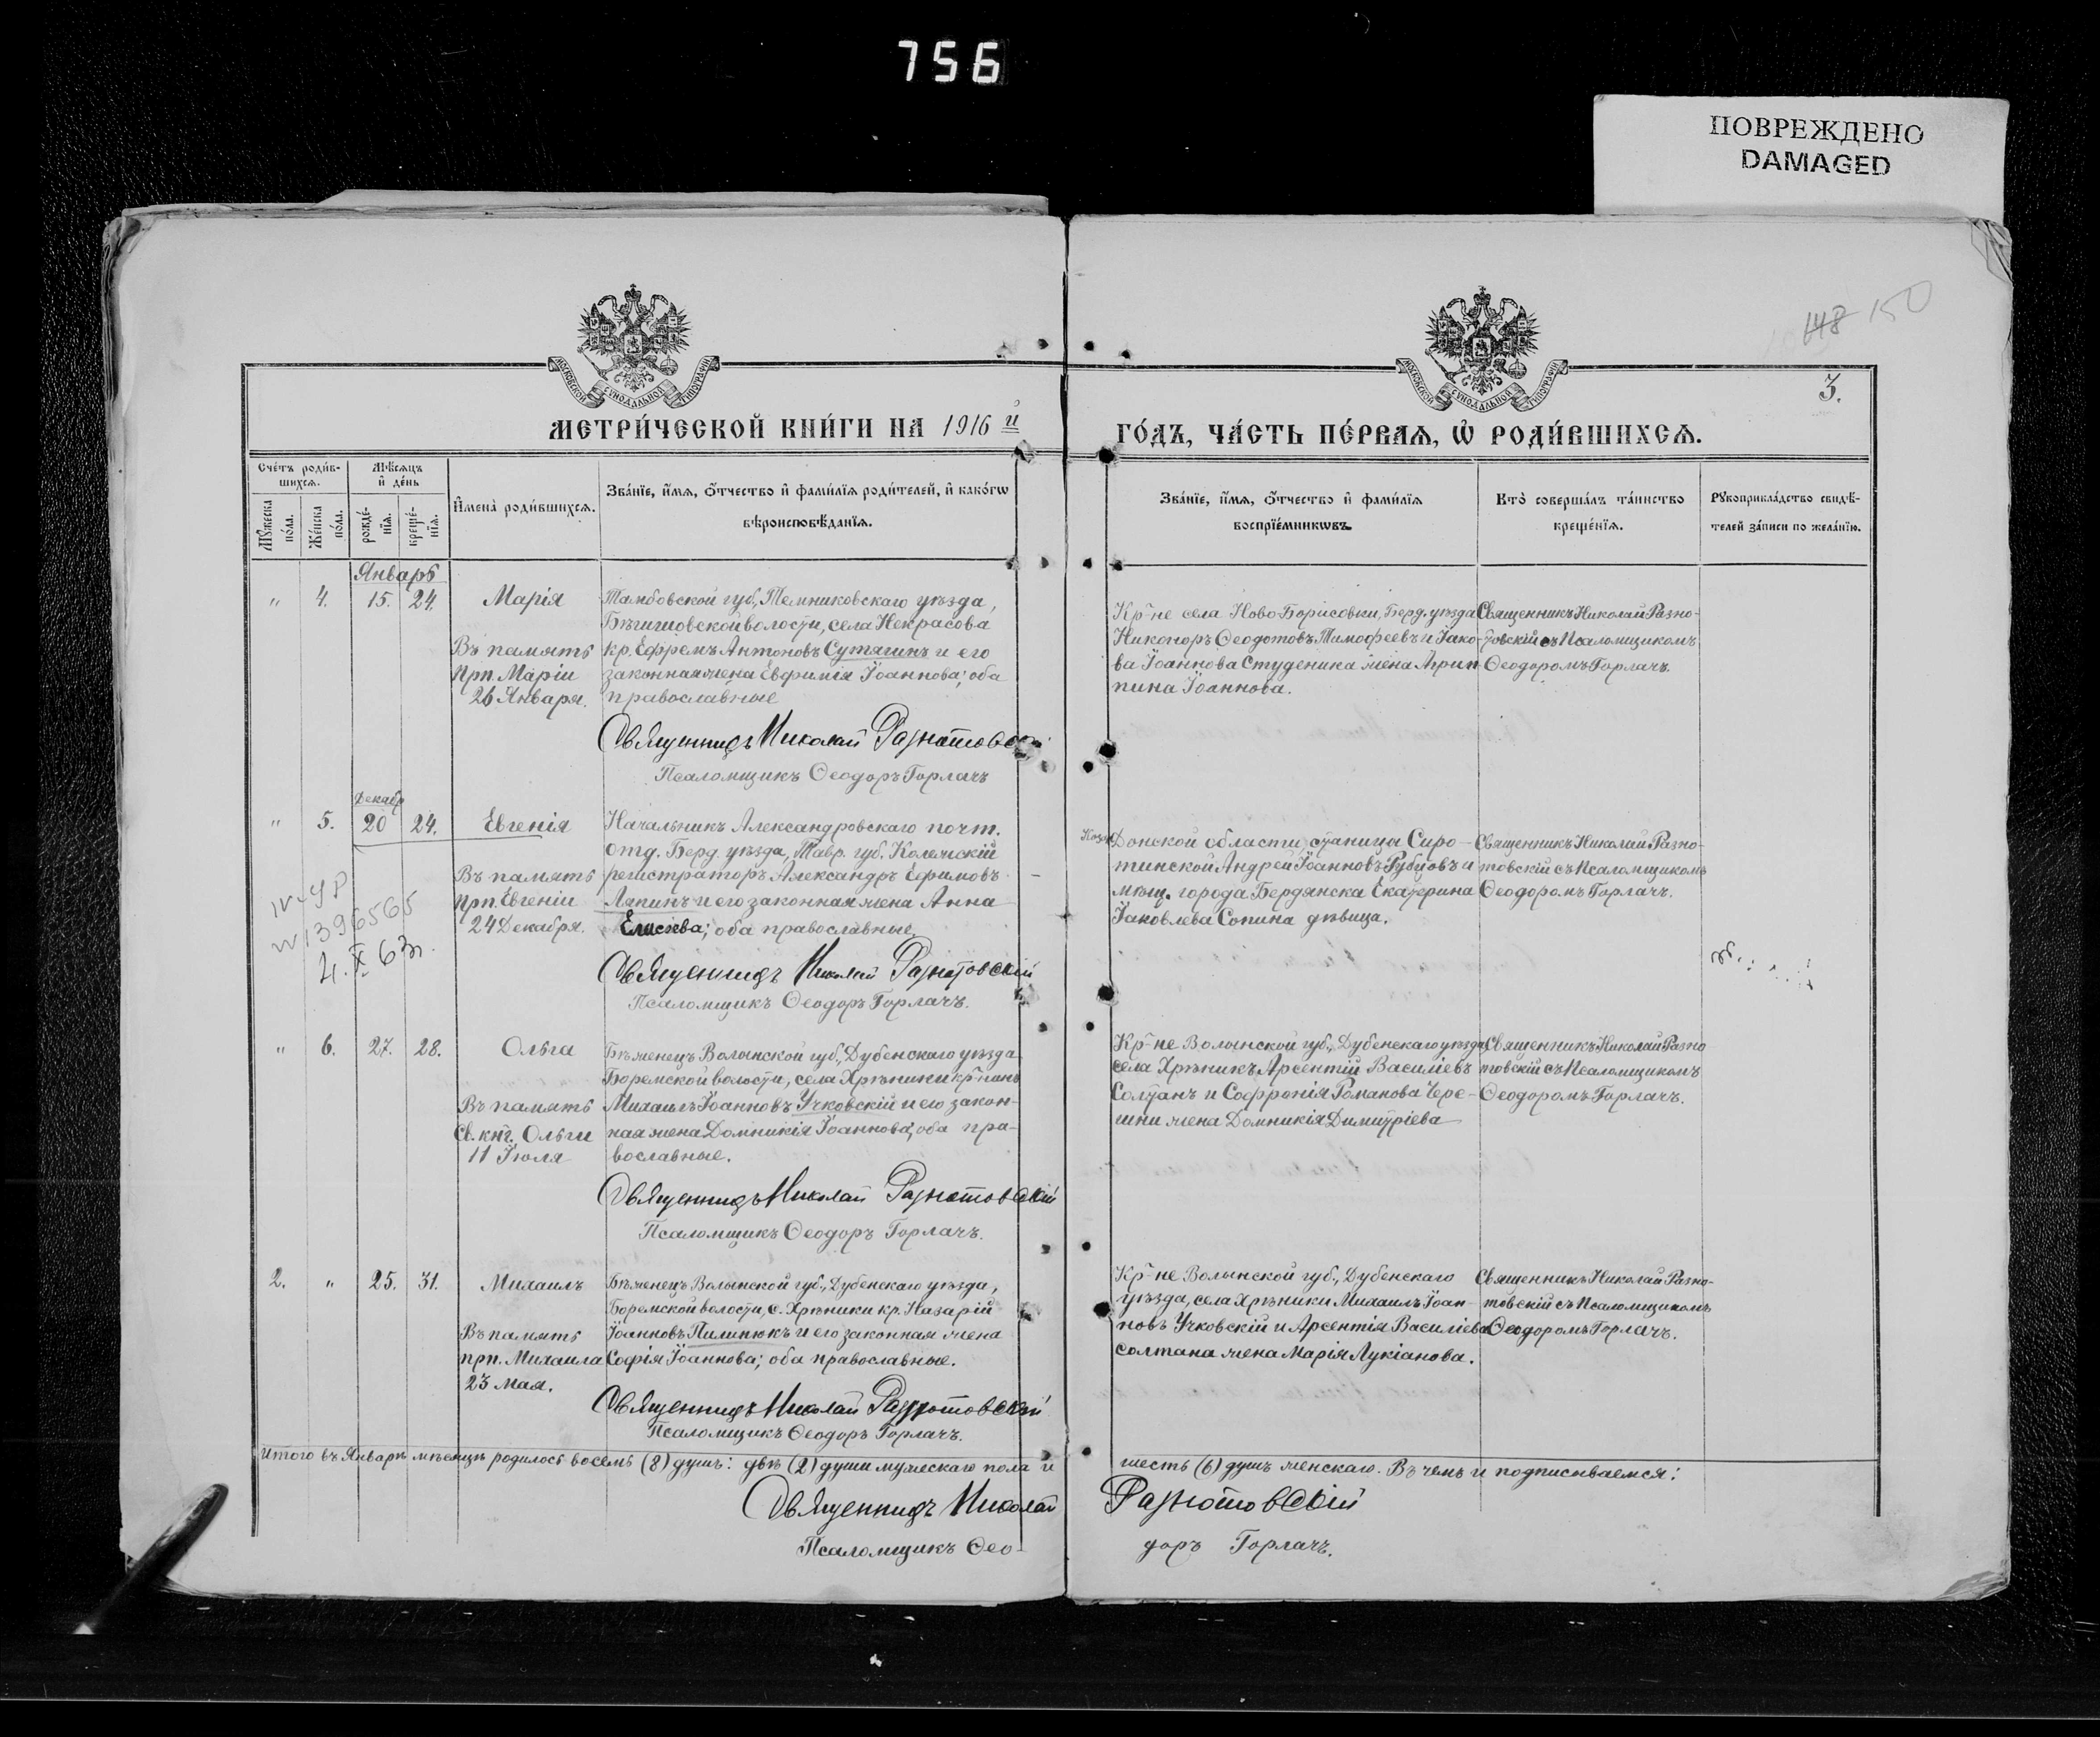 756
ПОВРЕЖДЕНО
DAMAGED
148 150
3.
МОСКОВСКОЙ СѴНОДАЛЬНОЙ ТИПОГРАФІИ
МОСКОВСКОЙ СѴНОДАЛЬНОЙ ТИПОГРАФІИ
МЕТРИ́ЧЕСКОЙ КНИ́ГИ НА 1916 й
ГО́ДЪ, ЧА́СТЬ ПЕ́РВАѦ, Ѡ҆ РОДИ́ВШИХСѦ.
Сче́тъ роди́в-
шихсѧ.
Мѣ́сѧцъ
и҆ де́нь
Мꙋ́жеска
по́ла.
Же́нска
по́ла.
рожде́-
нїѧ.
креще́-
нїѧ.
И҆мена̀ роди́вшихсѧ.
Зва́нїе, и҆́мѧ, ѻ҆́тчество и҆ фами́лїѧ роди́телей, и҆ како́гѡ
вѣроисповѣ́данїѧ.
Зва́нїе, и҆́мѧ, ѻ҆́тчество и҆ фами́лїѧ
воспрїе́мникѡвъ.
Кто̀ соверша́лъ та́инство
креще́нїѧ.
Рꙋкоприкла́дство свидѣ́-
телей за́писи по жела́нїю.
Январь
" 4. 15. 24. Марія
Въ память
прп. Маріи
26 Января.
Тамбовской губ., Темниковскаго уѣзда,
волости, села Некрасова
кр. Ефремъ Антоновъ Сутягинъ и его
законная жена Евфимія Іоаннова; оба
православные
Священникъ Николай Разнотовскій
Псаломщикъ Ѳеодоръ Горлачъ
Кр-не села Ново-Борисовки, Берд. уѣзда
Никоноръ Ѳеодотовъ Тимофеевъ и Іако-
ва Іоаннова Студеника жена Агрип-
пина Іоаннова.
Священникъ Николай Разно-
товскій съ Псаломщикомъ
Ѳеодоромъ Горлачъ.
Декабр
" 5. 20 24. Евгенія
Въ память
прп. Евгеніи
24 Декабря.
Начальникъ Александровскаго почт.
отд. Берд. уѣзда, Тавр. губ. Колежскій
регистраторъ Александръ Ефимовъ
Лапинъ и его законная жена Анна
Елисѣева; оба православные,
Священникъ Николай Разнотовскій
Псаломщикъ Ѳеодоръ Горлачъ.
Донской области, станица Сиро-
тинской Андрей Іоанновъ Рубцовъ и
мѣщ. города Бердянска Екатерина
Іаковлева Сопина дѣвица.
Священникъ Николай Разно-
товскій съ Псаломщикомъ
Ѳеодоромъ Горлачъ.
1396565
4.X 63г.
" 6. 27. 28. Ольга
Въ память
Св. кнг. Ольги
11 Іюля
Бѣженецъ Волынской губ., Дубенскаго уѣзда
Боремской волости, села Хрѣники кр-нинъ
Михаилъ Іоанновъ Учковскій и его закон-
ная жена Домникія Іоаннова; оба пра-
вославные.
Священникъ Николай Разнотовскій
Псаломщикъ Ѳеодоръ Горлачъ.
Кр-не Волынской губ., Дубенскаго уѣзда
села Хрѣникъ Арсентій Василіевъ
Солтанъ и Софронія Романова Чере-
шни жена Домникія Димитріева
Священникъ Николай Разно
товскій съ Псаломщикомъ
Ѳеодоромъ Горлачъ.
2. " 25. 31. Михаилъ
Въ память
прп. Михаила
23 Мая.
Бѣженецъ Волынской губ., Дубенскаго уѣзда,
Боремской волости, с. Хрѣники кр. Назарій
Іоанновъ Пилинюкъ и его законная жена
Софія Іоаннова; оба православные.
Священникъ Николай Разнотовскій
Псаломщикъ Ѳеодоръ Горлачъ.
Кр-не Волынской губ., Дубенскаго
уѣзда, села Хрѣники Михаилъ Іоан-
новъ Учковскій и Арсентія Василіева
Солтана жена Марія Лукіанова.
Священникъ Николай Разно-
товскій съ Псаломщикомъ
Ѳеодоромъ Горлачъ.
Итого въ Январѣ мѣсяцѣ родилось восемь (8) душъ: двѣ (2) души мужескаго пола и
шесть (6) душъ женскаго. Въ чемъ и подписываемся:
Священникъ Николай Разнотовскій
Псаломщикъ Ѳео-
доръ Горлачъ.